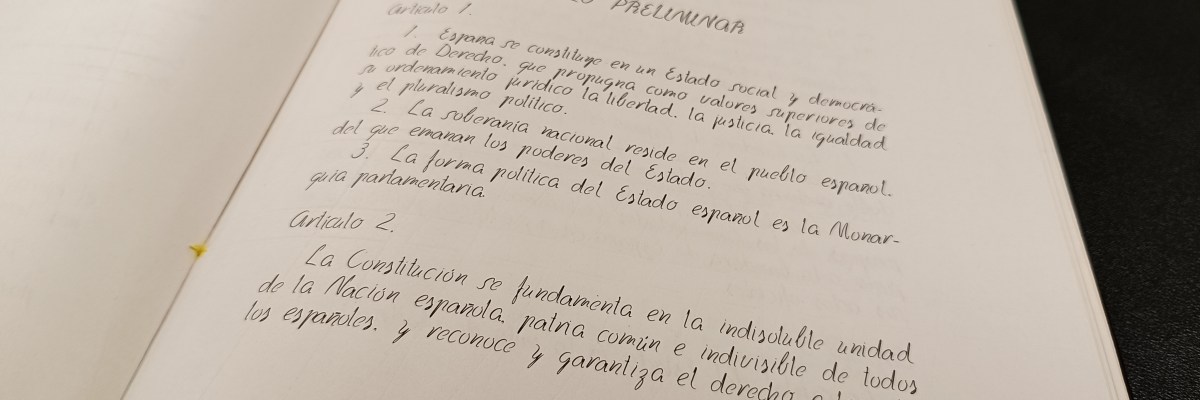 PRELIMINAR
Artículo 1.
1. España se constituye en un Estado social y democrá-
tico de Derecho, que propugna como valores superiores de
su ordenamiento jurídico la libertad, la justicia, la igualdad
y el pluralismo político.
2. La soberanía nacional reside en el pueblo español,
del que emanan los poderes del Estado.
3. La forma política del Estado español es la Monar-
quía parlamentaria.
Artículo 2.
La Constitución se fundamenta en la indisoluble unidad
de la Nación española, patria común e indivisible de todos
los españoles, y reconoce y garantiza el derecho